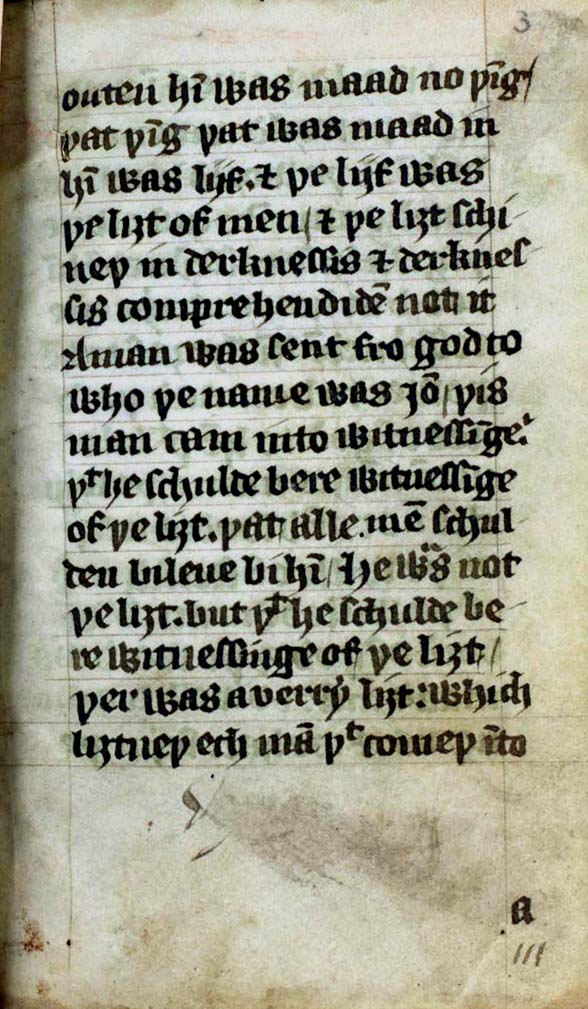 3
outen hī was maad no þīg/
þat þīg þat was maad in
hī was lijf. ⁊ þe lijf was
þe liȝt of men/ ⁊ þe liȝt schi
neþ in derknessis ⁊ derknes
sis comprehendidē not it
A man was sent fro god to
who þe name was Jō/ þis
man cam into witnessīge.
þᵗ he schulde bere witnessīge
of þe liȝt. þat alle mē schul
den bileue bi hī/ He was not
þe liȝt. but þᵗ he schulde be
re witnessinge of þe liȝt/
þer was a verrẏ liȝt: which
liȝtneþ ech mā þᵗ comeþ īto
a
iii